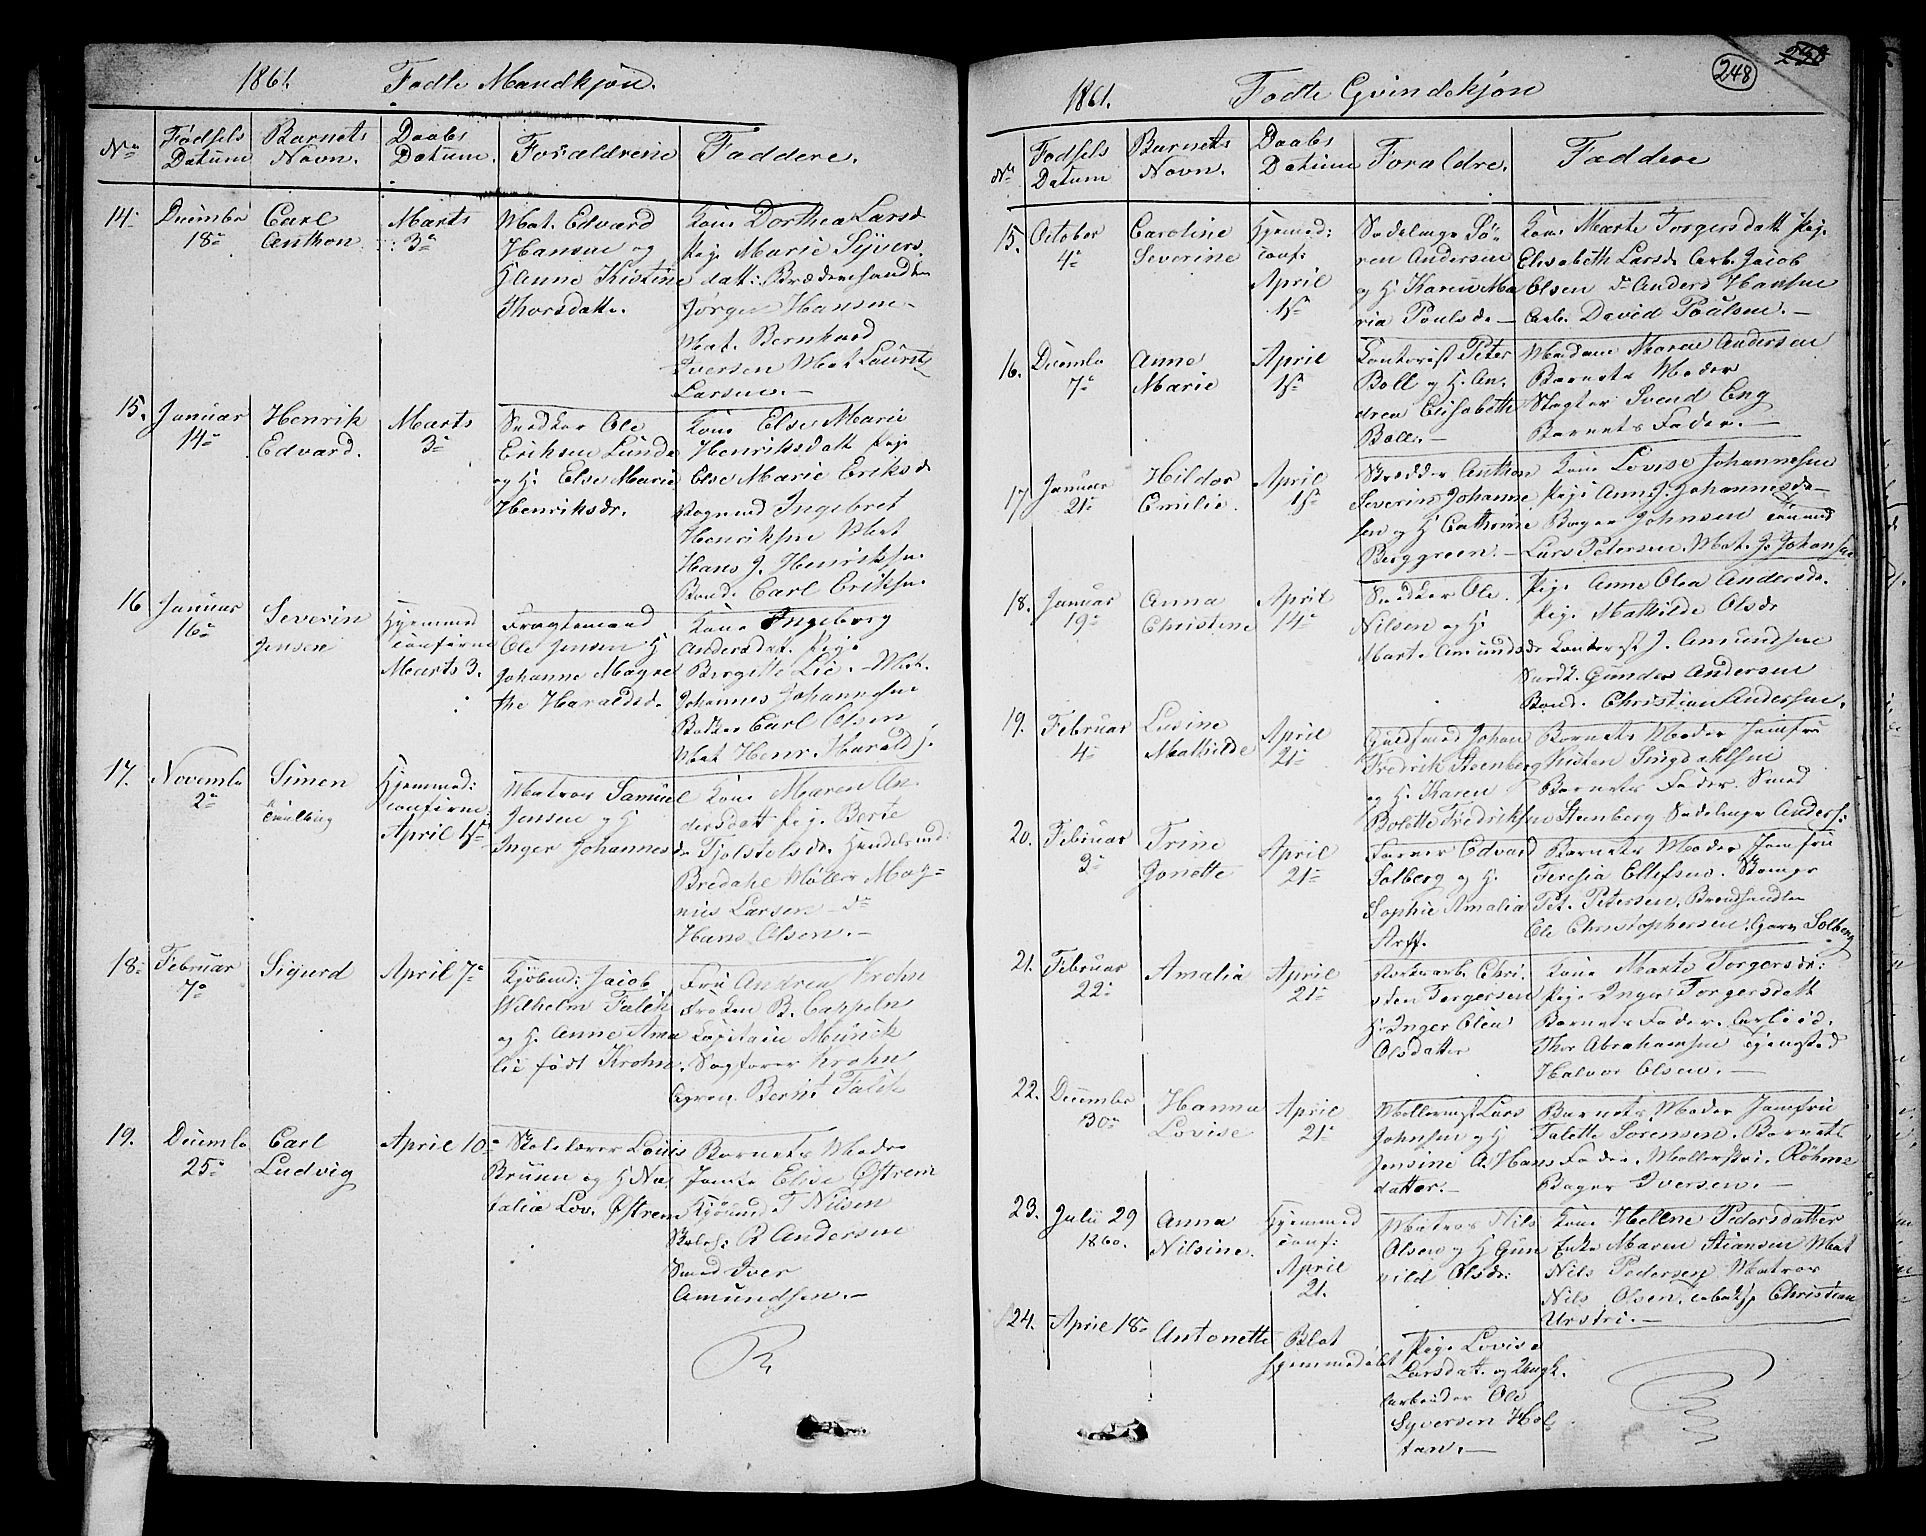 1861. Fødte Mandkjøn.
No Fødsels Datum Barnets Navn. Daabs Datum. Forældrene Faddere.
14. Decembr 18de Carl Anthon Marts 3de
Mat. Edvard
Hansen og
Hanne Kistine
Thorsdatte.
Kone Dorthea Larsd
Pige Marie Syvers
datt: Brædderhandler
Jørgen Hansen
Mat. Bernhard
Iversen Mat Laurets
Larsen.—
15. Januar 14de Henrik Edvard. Marts 3de
Snedker Ole
Eriksen Lunde
og H. Else Marie
Henriksdr.
Kone Else Marie
Henriksdatt Pige
Else Marie Eriksd
Ingebret
Henriksen Mat
Hans J. Henriksen
Carl Eriksen.
16 Januar 16de Severin Jensen Hjemmed confirme Marts 3.
Fragtemand
Ole Jensen H
Johanne Magre
the Haraldsd.
Kone Ingeborg
Andersdat. Pige
Birgitte Lie. Mat.
Johannes Johannesen
Carl Olsen
Mat Henr. Harald J.
17. Novembr 2de Simen Hjemmed: confirme April 1ste
Matros Samuel
Jensen og H
Inger Johannesdr
Kone Maren An
dersdatt Pige Berte
Handelsmd:
Bredahl Møller Mag-
nus Larsen do
Hans Olsen.—
18. Februar 7de Sigurd April 7de
Kjøbmd: Jacob
Wilhelm Falck
og H. Anne Ama
lie født Krohn.
Fru Andrea Krohn
Frøken B. Cappeln
Capitain Munck
Sagfører Krohn
Bernt Falck
19. Decembr 25de Carl Ludvig April 10de
Skolelærer Louis
Bruun og H Na
talia Lov. Østrem
Barnets Moder
Jomfr Elise Østrem
Kjømd T Nilsen
B Andersen
Smed Iver
Amundsen.—
248
1861. Fødte Qvindekjøn
No Fødsels Datum Barnets Navn. Daabs Datum Foraldre. Faddere
15. October 4de Caroline Severine Hjemmed: conf: April 1ste
Sadelmager Sø-
ren Andersen
og H. Karen Ma
ria Poulsdr—
Kone Marte Torgersdatt Pige
Elisabeth Larsdr Arb. Jacob
Olsen do Anders Hansen
Arb. David Poulsen.—
16. Decembr 7de Anne Marie April 1ste
Contorist Peter
Boll og H. An.
drea Elisabeth
Boll.—
Madam Maren Andersen
Barnets Moder
Slagter Svend Eng
Barnets Fader.—
17 Januar 21de Hildor Emilie. April 1ste
Skrædder Anthon
Severin Johanne
sen og H Cathrine
Berggreen.—
Kone Lovise Johannesen
Pige Anne J. Johannesdr—
Bager Johnsen
Lars Petersen, Mat. J. Johansen
18. Januar 19de Anna Christine April 14de
Snedker Ole
Nilsen og H
Mart. Amundsdr
Pige Anne Olea Andersdr.
Pige Mathilde Olsdr
Contorist J. Amundsen
Snedk. Gunder Andersen
Christian Andersen.
19. Februar 4de Lusine Mathilde April 21de
Guldsmed Johan
Fredrik Steenberg
og H. Karen
Bolette Fredriksen
Barnets Moder Jomfru
Kisten Lingdahlsen
Barnets Fader. Smed
Stenberg Sadelmager Anders:
20. Februar 3de Trine Jonette April 21de
Farver Edvard
Solberg og H.
Sophie Amalia
Arff.
Barnets Moder Jomfru
Teresia Ellefsen.
Pet. Petersen, Brændhandler
Ole Christophersen, Garv Solberg
21. Februar 22de Amalia April 21de
Chri.
sten Torgersen
H. Inger Olea
Olsdatter
Kone Marte Torgersdr:
Pige Inger Torgersdatt
Barnets Fader.
Thor Abrahamsen
Halvor Olsen.—
22. Decembr 30de Hanna Lovise April 21de
Møllermst Lars
Johnsen og H
Jensine A. Hans
datter.—
Barnets Moder Jomfru
Talette Sørensen. Barnets
Fader. Møllerski. Røhme
Bager Iversen.—
23. Julii 29 1860. Anna Nilsine. Hjemmed conf: April 21.
Matros Nils
Olsen og H Gun
nild Olsdr:
Kone Hellne Pedersdatter
Enke Maren Stiansen Mat
Nils Pedersen Matros
Nils Olsen, Christian
Urstri.—
24. April 18de Antonette Blot hjemmedøbt
Pige Lovise
Larsdatt. og Ungk.
arbeider Ole
Syversen Hol
tan.—